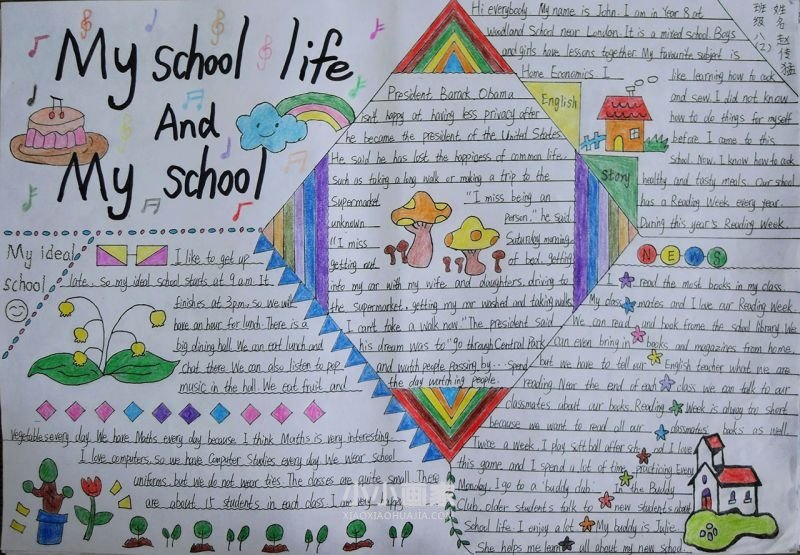 My school life
And
My school
My ideal
school
I like to get up
late, so my ideal school starts at 9 a.m. It
finishes at 3 p.m. so We will
have an hour for lunch. There is a
big dining hall. We can eat lunch and
Chat there. We can also listen to pop
music in the hall. We eat fruit and
Vegetables every day. We have Maths every day because I think Maths is very interesting.
I love computers, so we have Computer Studies every day. We wear school
uniforms, but we do not wear ties. The classes are quite small. There
are about 15 students in each class. I
President Barack Obama
isn't happy at having less privacy after
he became the president of the United States.
He said he has lost the happiness of common life.
Such as taking a long walk or making a trip to the
Supermarket
unknown
"I miss being an
person," he said
"I miss
Saturday morning
getting out
of bed, getting
into my car with my wife and daughters, driving to
the supermarket, getting my car washed and taking walks.
I can't take a walk now." The president said
his dream was to "go through Central Park
and watch people passing by... Spend
the day watching people.
Hi everybody. My name is John. I am in Year 8 at
Woodland School near London. It is a mixed school. Boys
and girls have lessons together. My favourite subject is
Home Economics. I
English
Story
like learning how to cook
and sew. I did not know
how to do things for myself
before I came to this
School. Now, I know how to cook
healthy and tasty meals. Our school
has a Reading Week every year.
During this year's Reading Week,
NEWS
I read the most books in my class.
My classmates and I love our Reading Week.
We can read and book from the school library. We
can even bring in books and magazines from home,
but we have to tell our English teacher what we are
reading. Near the end of each class we can talk to our
classmates about our books. Reading Week is always too short
because we want to read all our classmates' books as well.
Twice a week I play softball after school. I love
this game and I spend a lot of time practicing. Every
Monday, I go to a 'buddy club. In the Buddy
Club, older students talk to new students about
School life. I enjoy a lot. My buddy is Julie.
She helps me learn all about my new school.
姓名 赵传猛
班级 八(2)
小小画家
XIAOXIAOHUAJIA.COM